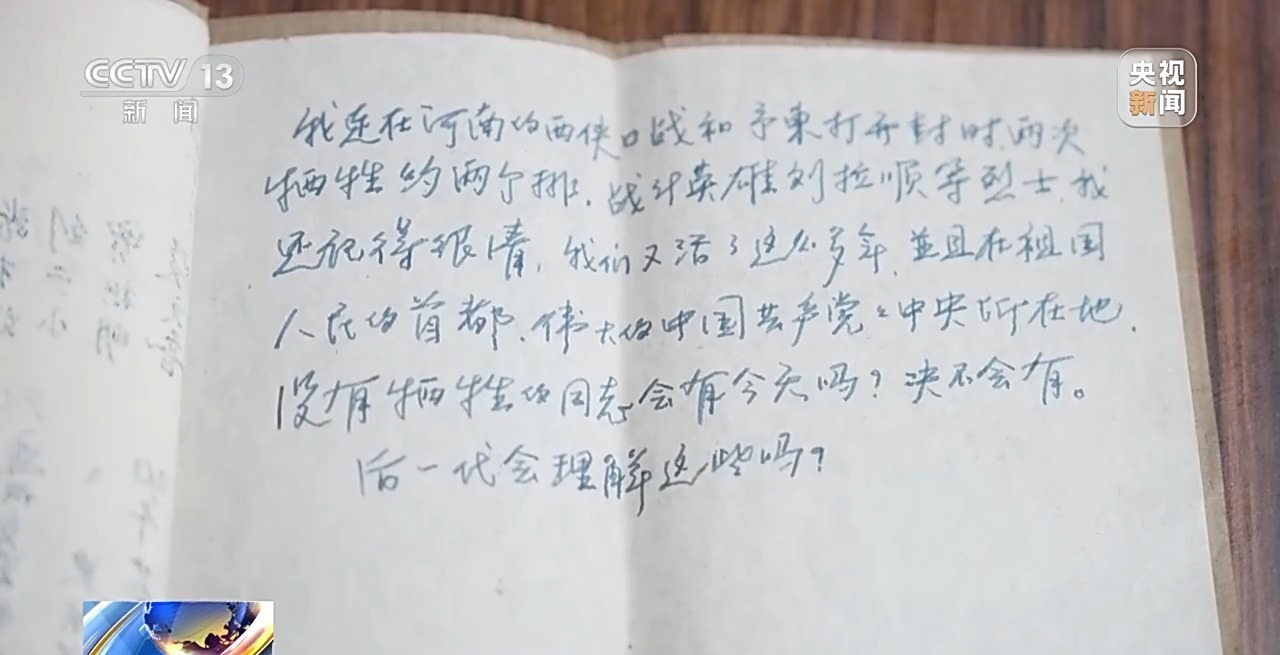 CCTV 13
新闻
央视
新闻
我连在河南的西侠口战和予東打开封时,两次
牺牲约两个排,战斗英雄刘拉顺等烈士,我
还记得很清,我们又活了这么多年,並且在祖国
人民的首都,伟大的中国共产党之中央所在地,
没有牺牲的同志会有今天吗?决不会有。
后一代会理解这些吗?